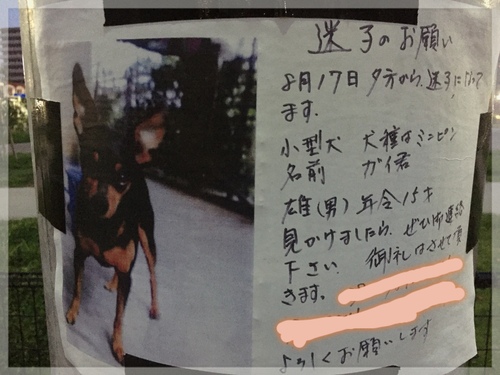 迷子のお願い
8月17日夕方から、迷子になって
ます。
小型犬 犬種はミニピン
名前 ガイ君
雄(男) 年令15才
見かけましたら、ぜひ御連絡
下さい 御礼はさせて頂
きます。
よろしくお願いします